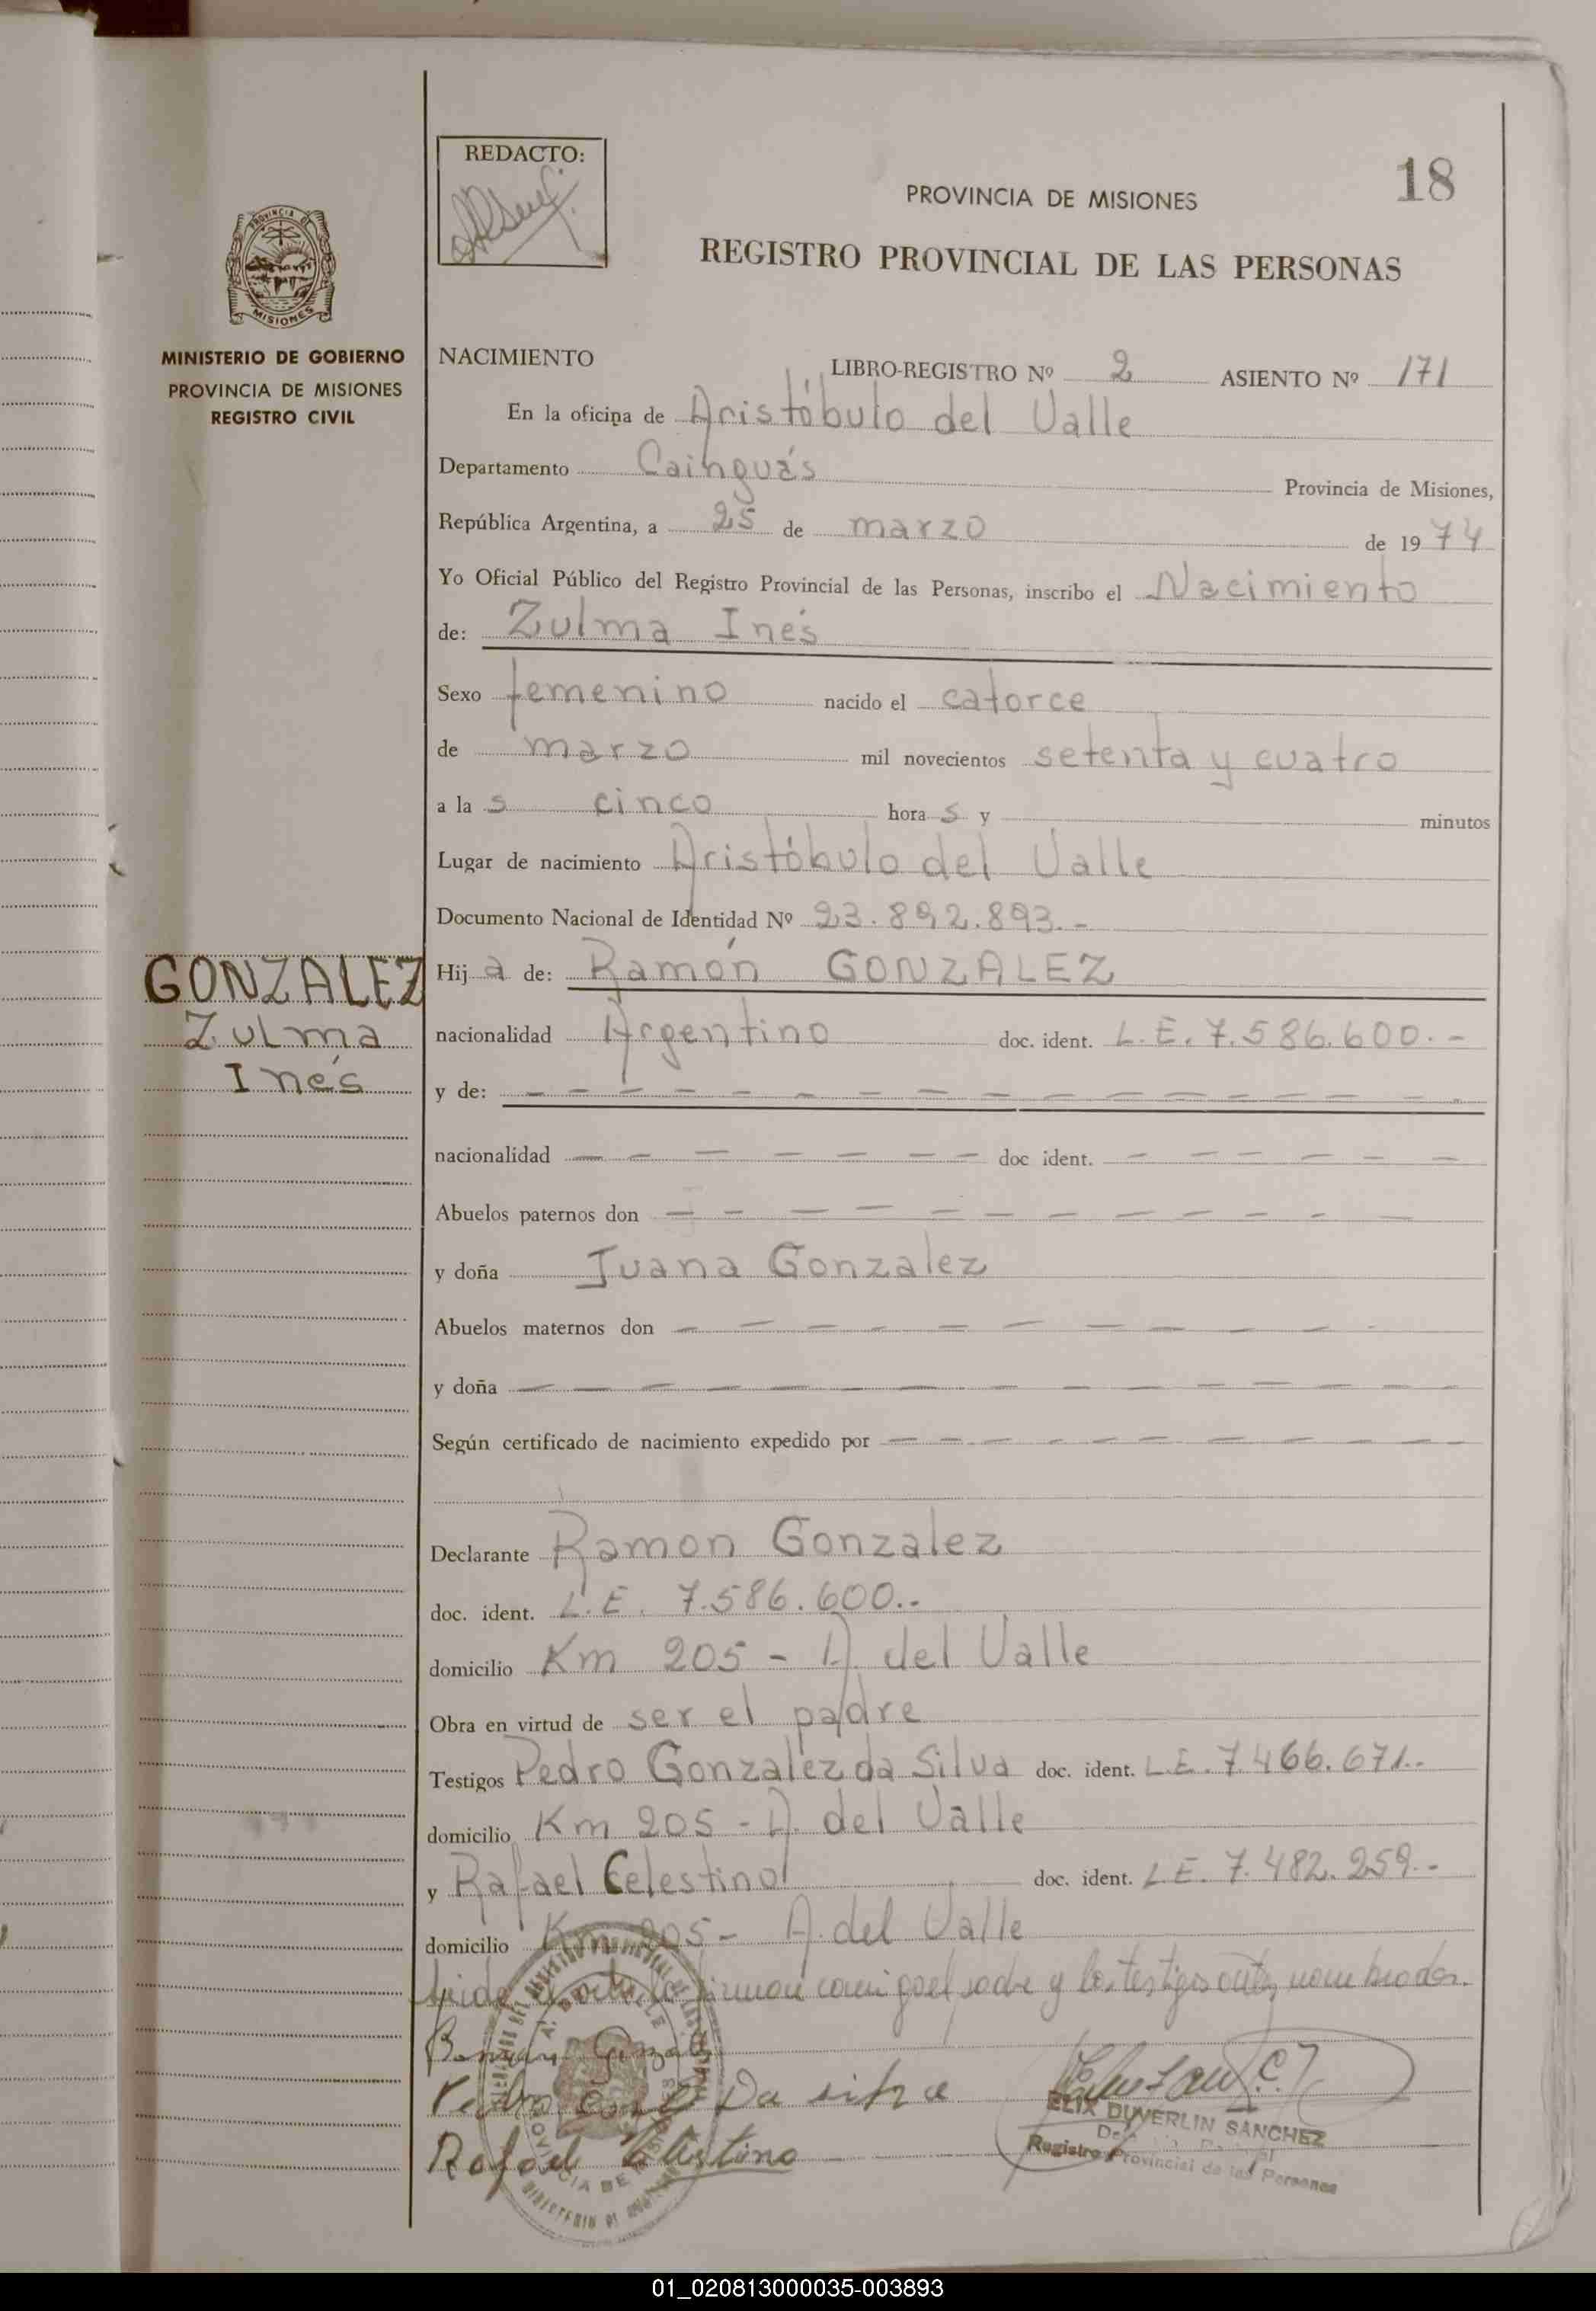 REDACTO:
18
PROVINCIA DE MISIONES
REGISTRO PROVINCIAL DE LAS PERSONAS
PROVINCIA DE
MISIONES
MINISTERIO DE GOBIERNO
PROVINCIA DE MISIONES
REGISTRO CIVIL
NACIMIENTO LIBRO-REGISTRO Nº 2 ASIENTO Nº 171
En la oficina de Aristóbulo del Valle
Departamento Cainguás Provincia de Misiones,
República Argentina, a 25 de marzo de 1974
Yo Oficial Público del Registro Provincial de las Personas, inscribo el Nacimiento
de: Zulma Inés
Sexo femenino nacido el catorce
de marzo mil novecientos setenta y cuatro
a la s cinco hora s y minutos
Lugar de nacimiento Aristóbulo del Valle
Documento Nacional de Identidad Nº 23.892.893.-
GONZALEZ
Zulma
Inés
Hij a de: Ramón GONZALEZ
nacionalidad Argentino doc. ident. L.E. 7.586.600.-
y de: — — — — — — — — — — — — — — —
nacionalidad — — — — — — — doc ident. — — — — — —
Abuelos paternos don — — — — — — — — — — — —
y doña Juana Gonzalez
Abuelos maternos don — — — — — — — — — —
y doña — — — — — — — — — — — — —
Según certificado de nacimiento expedido por — — — — — — — — — —
Declarante Ramon Gonzalez
doc. ident. L.E. 7.586.600.-
domicilio Km 205 - A. del Valle
Obra en virtud de ser el padre
Testigos Pedro Gonzalez da Silva doc. ident. L.E. 7.466.671.-
domicilio Km 205 - A. del Valle
y Rafael Celestino doc. ident. L.E. 7.482.259.-
domicilio Km 205 - A. del Valle
Leida el acta la firman conmigo el padre y los testigos antes nombrados.
Pedro Da silva
Rafael Celestino
ELIX DUVERLIN SANCHEZ
Registro Provincial de las Personas
01_020813000035-003893